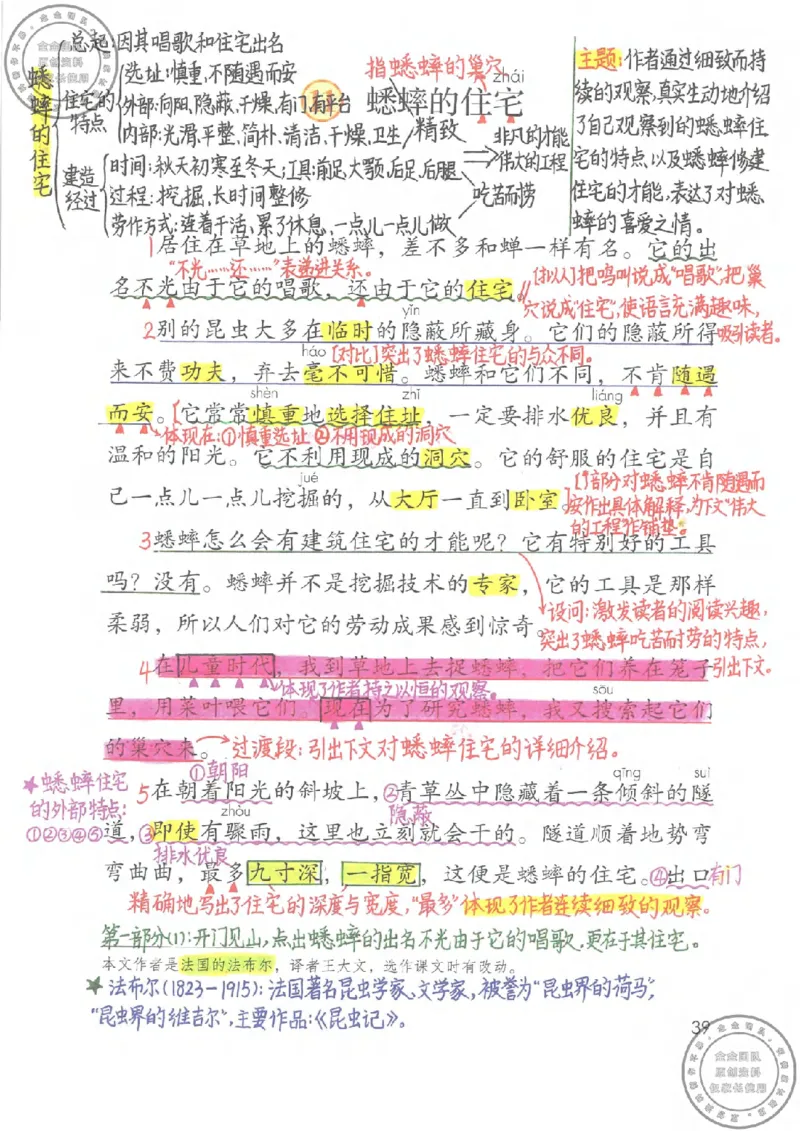 总起:因其唱歌和住宅出名
蟋蟀的住宅
住宅的特点
选址:慎重,不随遇而安
外部:向阳、隐蔽、干燥、有门、有平台
内部:光滑、平整、简朴、清洁、干燥、卫生
精致
建造经过
时间:秋天初寒至冬天;工具:前足、大颚、后足、后腿
过程:挖掘,长时间整修
劳作方式:连着干活、累了休息、一点儿一点儿做
非凡的才能
伟大的工程
吃苦而劳
指蟋蟀的巢穴
zhái
11 蟋蟀的住宅
主题:作者通过细致而持
续的观察,真实生动地介绍
了自己观察到的蟋蟀住
宅的特点,以及蟋蟀修建
住宅的才能,表达了对蟋
蟀的喜爱之情。
1居住在草地上的蟋蟀，差不多和蝉一样有名。它的出
“不光……还……”表递进关系。
名不光由于它的唱歌，还由于它的住宅。
[拟人]把鸣叫说成“唱歌”,把巢
穴说成“住宅”,使语言充满趣味,
吸引读者。
yǐn
2别的昆虫大多在临时的隐蔽所藏身。它们的隐蔽所得
háo
[对比]突出了蟋蟀住宅的与众不同。
来不费功夫，弃去毫不可惜。蟋蟀和它们不同，不肯随遇
shèn zhǐ liáng
而安。[它常常慎重地选择住址，一定要排水优良，并且有
体现在:①慎重选址 ②不用现成的洞穴
温和的阳光。它不利用现成的洞穴。它的舒服的住宅是自
jué
己一点儿一点儿挖掘的，从大厅一直到卧室。]
[]部分对蟋蟀不肯随遇而
安作出具体解释,为下文“伟大
的工程”作铺垫。
3蟋蟀怎么会有建筑住宅的才能呢？它有特别好的工具
吗？没有。蟋蟀并不是挖掘技术的专家，它的工具是那样
柔弱，所以人们对它的劳动成果感到惊奇。
设问:激发读者的阅读兴趣,
突出了蟋蟀吃苦耐劳的特点,
引出下文。
4在儿童时代，我到草地上去捉蟋蟀，把它们养在笼子
体现了作者持之以恒的观察。
sōu
里，用菜叶喂它们。现在为了研究蟋蟀，我又搜索起它们
的巢穴来。
过渡段:引出下文对蟋蟀住宅的详细介绍。
①朝阳
qīng suì
★蟋蟀住宅
的外部特点:
①②③④⑤
5在朝着阳光的斜坡上，②青草丛中隐藏着一条倾斜的隧
zhòu
隐蔽
道，③即使有骤雨，这里也立刻就会干的。隧道顺着地势弯
排水优良
弯曲曲，最多九寸深，一指宽，这便是蟋蟀的住宅。④出口
有门
精确地写出了住宅的深度与宽度,“最多”体现了作者连续细致的观察。
第一部分(1):开门见山,点出蟋蟀的出名不光由于它的唱歌,更在于其住宅。
本文作者是法国的法布尔，译者王大文，选作课文时有改动。
★法布尔(1823-1915):法国著名昆虫学家、文学家,被誉为“昆虫界的荷马”,
“昆虫界的维吉尔”,主要作品:《昆虫记》。
39
金金团队
原创资料